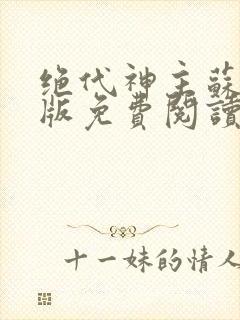 绝代神主蘇
版免費閱讀
十一妹的情人